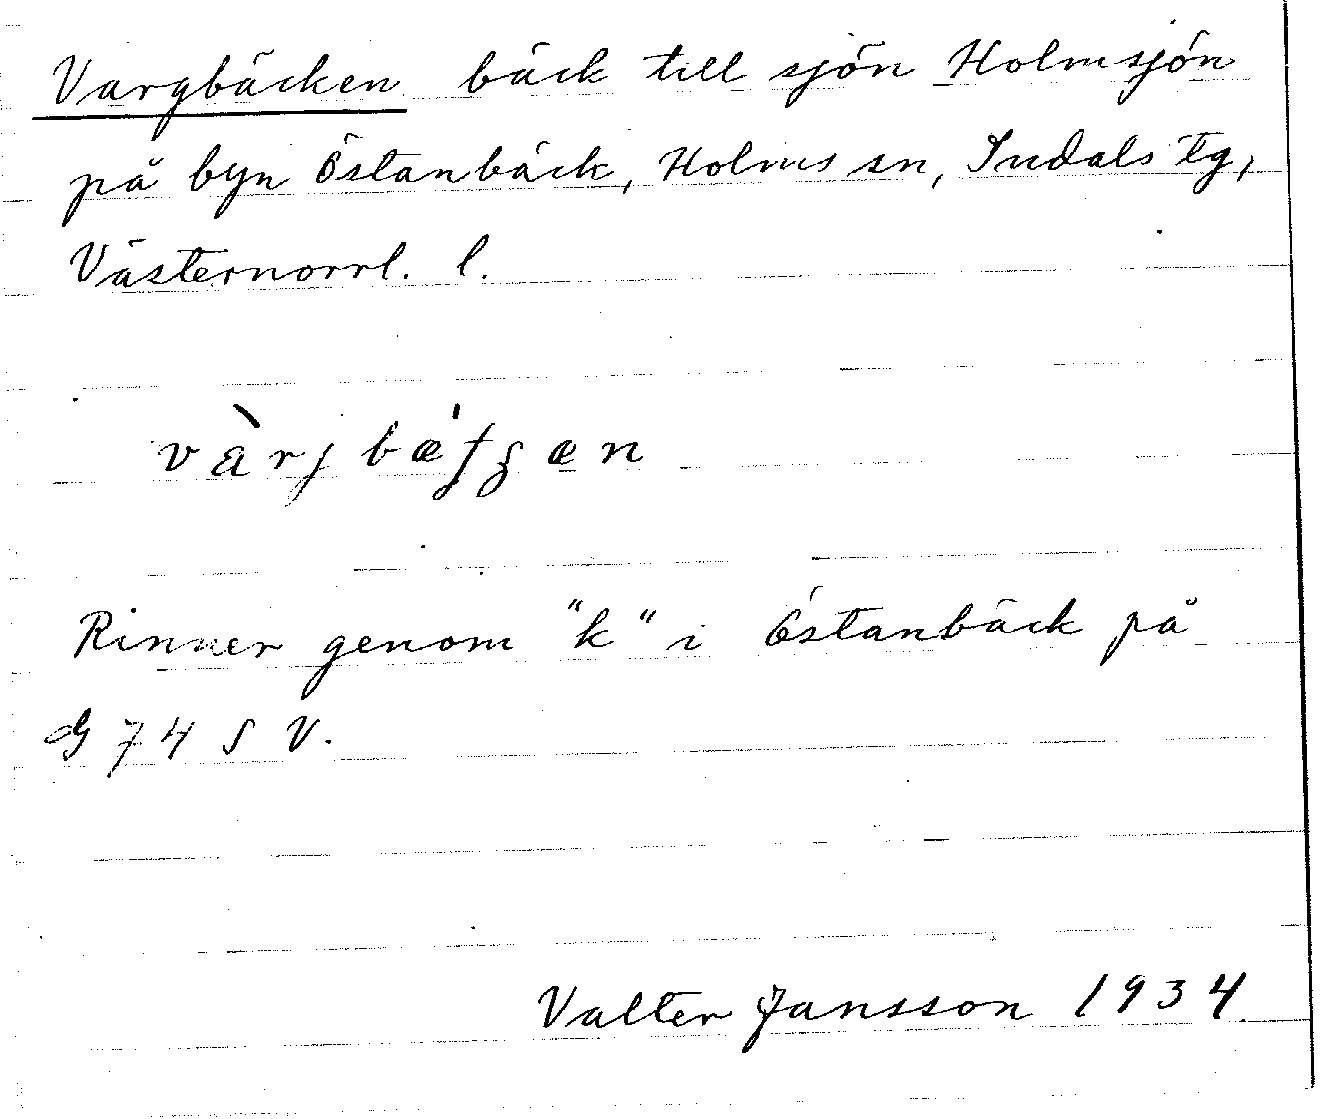 Vargbäcken bäck till sjön Holmsjön
på byn Östanbäck, Holms sn, Indals tg,
Västernorrl. l.
Rinner genom "k" i Östanbäck på
G 74 S V.
Valter Jansson 1934